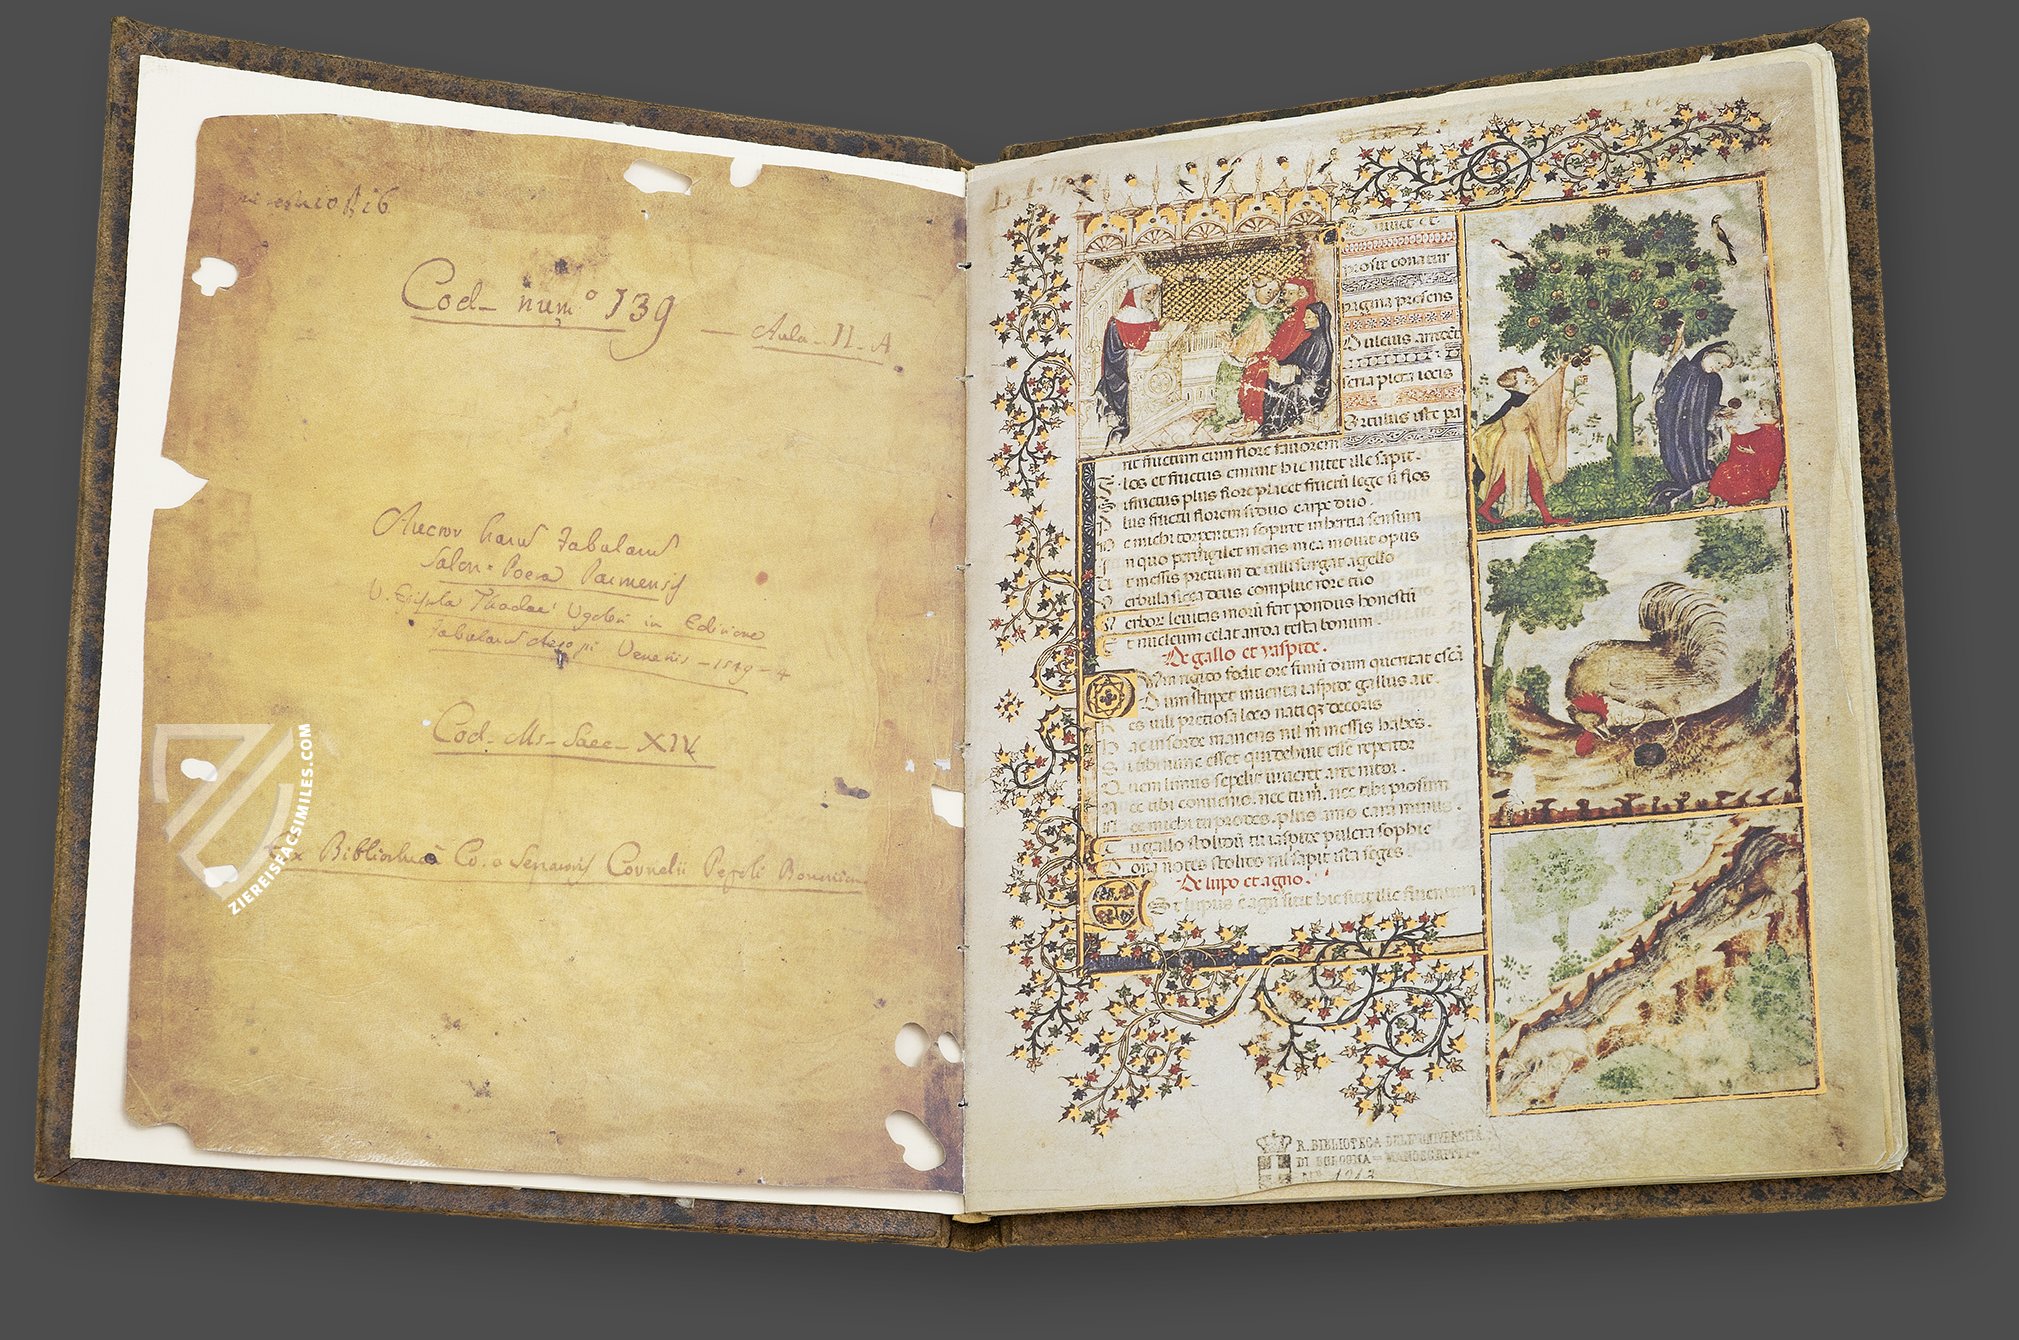 Cod– numº 139 – Aula– II– A
Auctor harũ Fabularũ
Salon– Poeta Parmensis
V. Epistola Thadaei Ugoleti in Editione
Fabularũ Aesopi Venetiis –1519– 4
Cod– Ms– Saec– XIV
Ex Bibliotheca Co. o Senatoris Cornelii Pepoli Bononien
ZIEREISFACSIMILES.COM
prosit conatur
pagina presens
Dulcius
seria picta iocis
ut fructum cum flore fauorem
flos et fructus emunt hic nitet ille sapit.
Si fructus plus flore placet fructũ lege si flos
Plus fructu florem si duo carpe duo.
michi torpentem sopiret inhertia sensum
In quo peruigilet mens mea mouit opus
Ut messis pretium de uili surgat agello
Verbula sicca deus complue rore tuo
Verborũ leuitas morũ fert pondus honestũ
Et nucleum celat arida testa bonum.
De gallo et yaspide.
Dum rigido fodit ore fimũ dum queritat escã
Dum stupet inuenta iaspide gallus ait.
Res uili pretiosa loco nati qʒ decoris
Hac in sorde manens nil m̃ messis habes.
Si tibi nunc esset qui debuit esse repertor
Quem limus sepelit uiueret arte nitor.
Nec tibi conuenio. nec tu m̃. nec tibi prosum
Nec michi tu prodes. plus amo cara minus.
Tu gallo stolidũ tu iaspide pulcra sophie
Dona notes stolido nil sapit ista seges
De lupo et agno.
Est lupus e agnũ sitit hic sitit ille fluentum
R. BIBLIOTECA DELL'UNIVERSITÀ
DI BOLOGNA– MANOSCRITTI–
Nº 1213